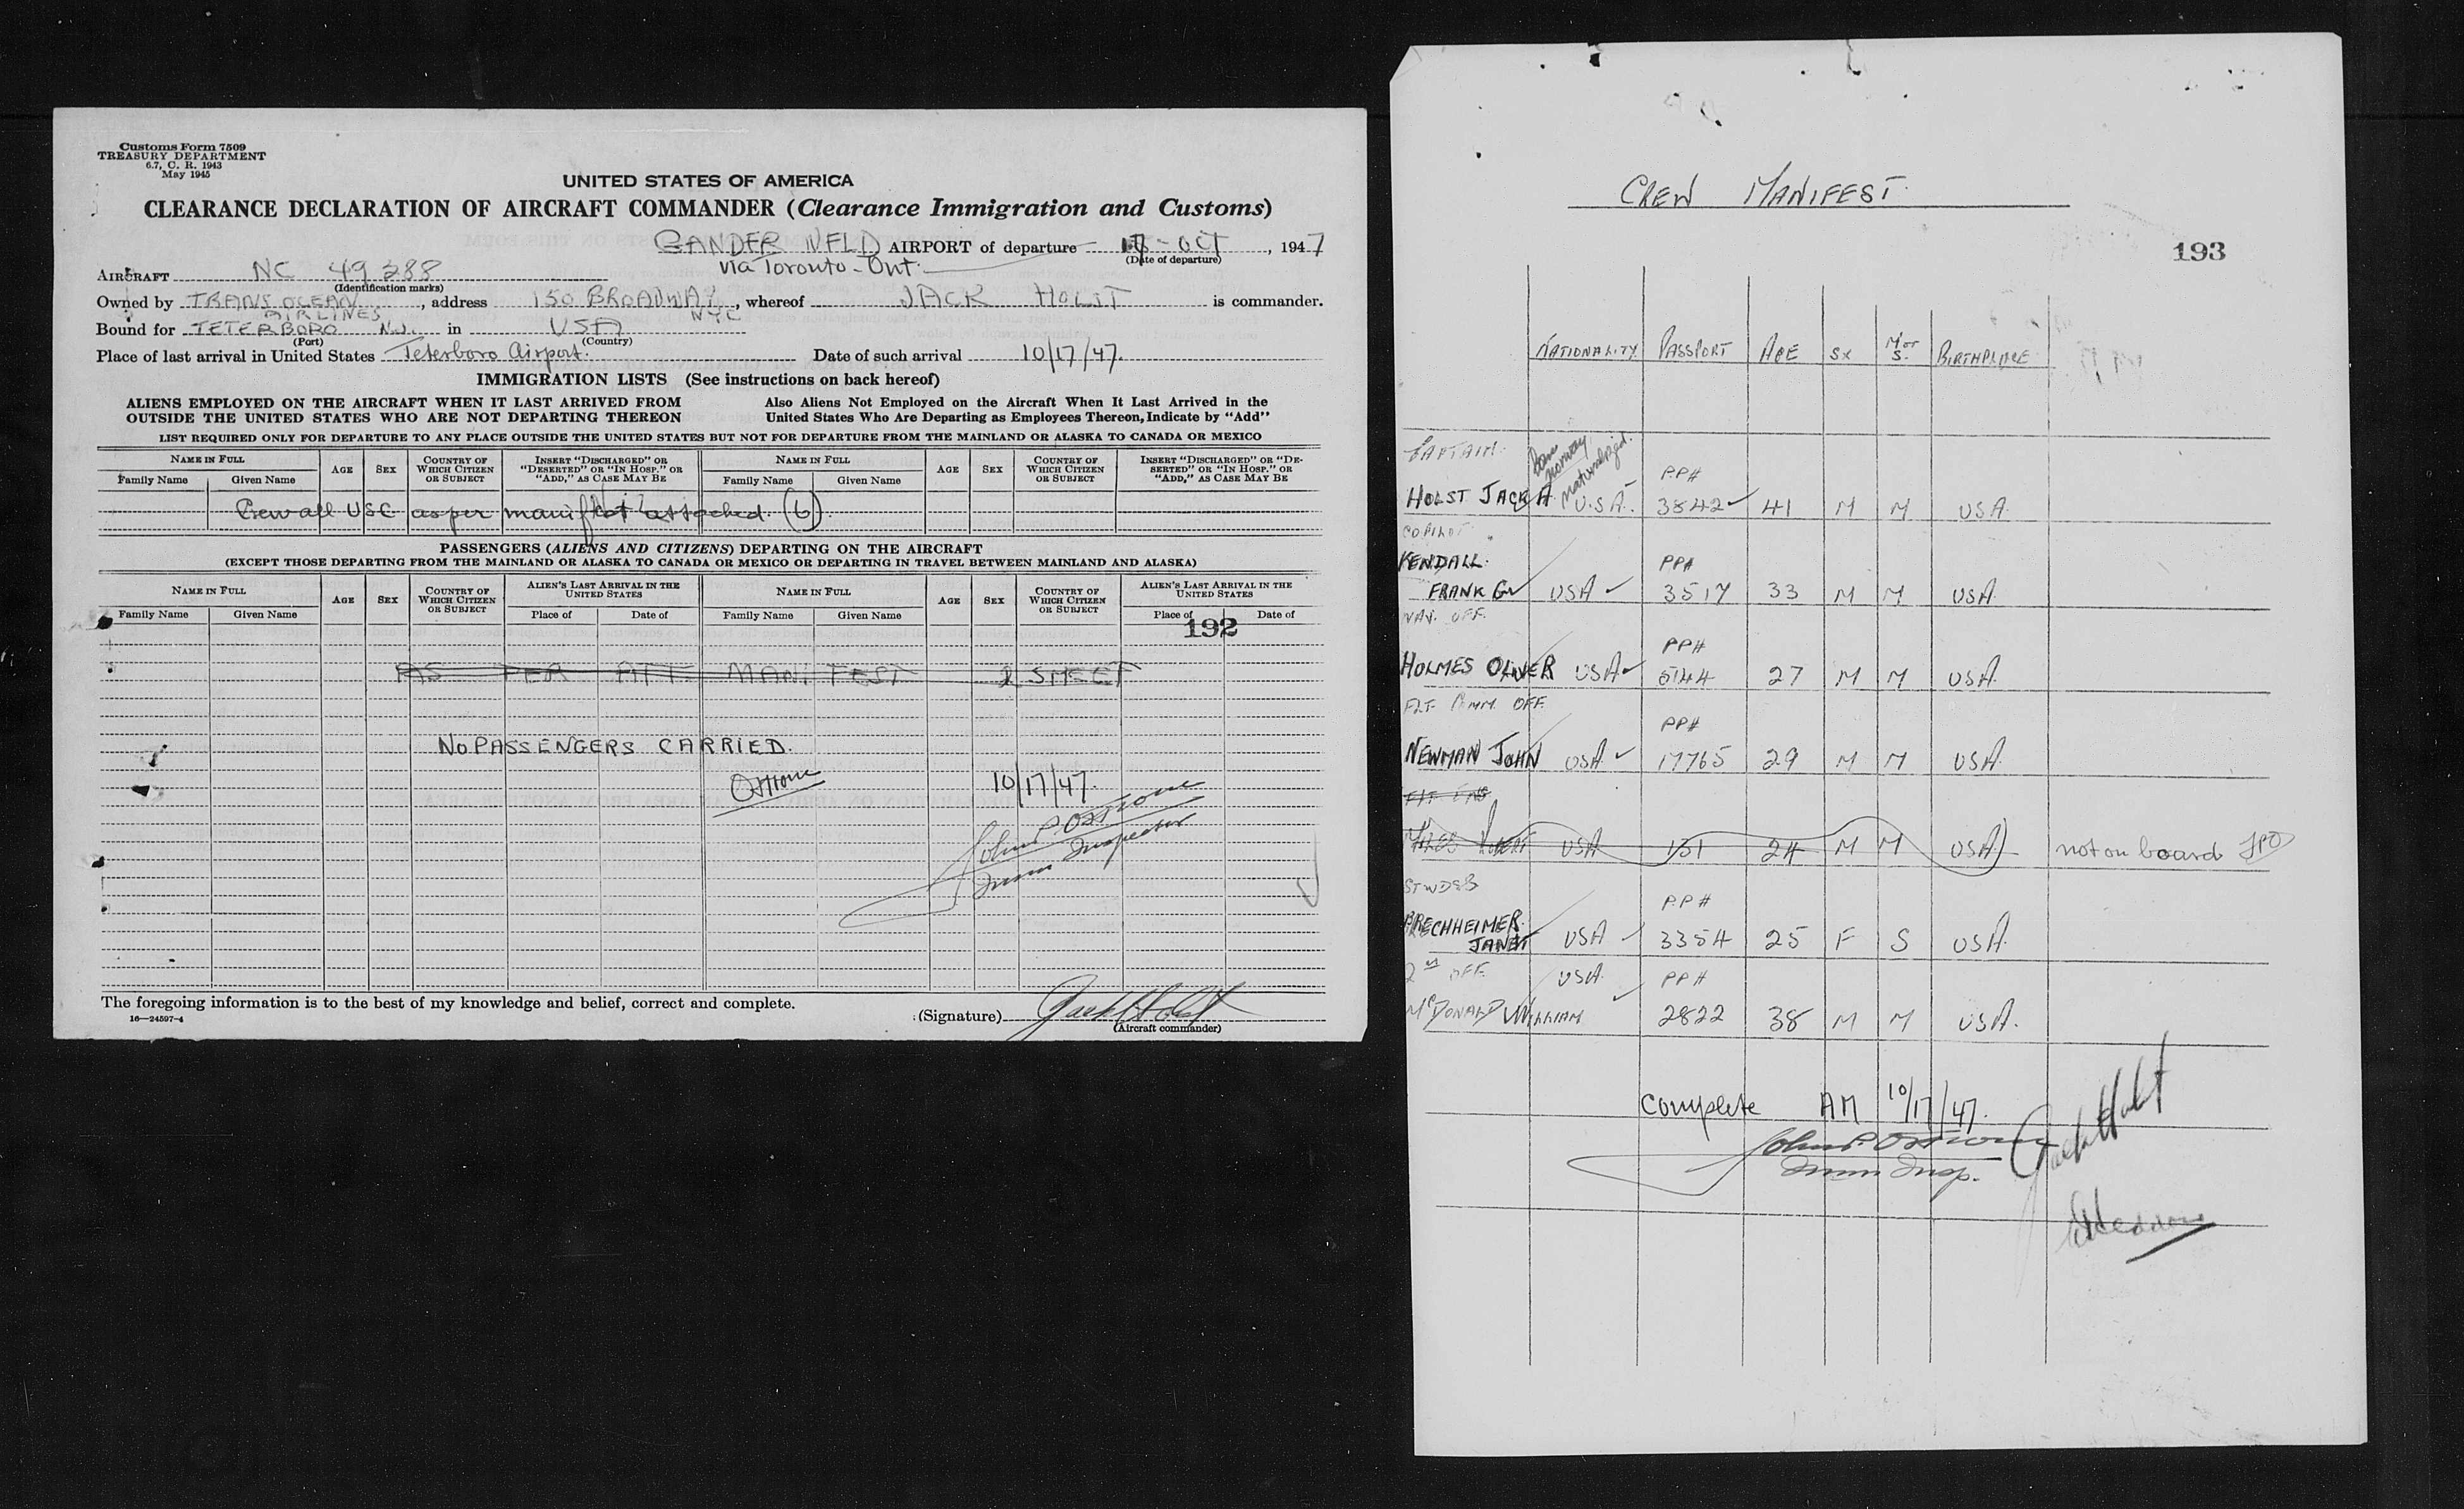 Customs Form 7509
TREASURY DEPARTMENT
6.7, C. R. 1943
May 1945
UNITED STATES OF AMERICA
CLEARANCE DECLARATION OF AIRCRAFT COMMANDER (Clearance Immigration and Customs)
GANDER NFLD AIRPORT of departure 17-OCT, 1947
(Date of departure)
via Toronto-Ont.
AIRCRAFT NC 49288
(Identification marks)
Owned by TRANS OCEAN AIRLINES, address 150 BROADWAY NYC, whereof JACK HOLST is commander.
Bound for TETERBORO N.J. in USA
(Port) (Country)
Place of last arrival in United States Teterboro Airport. Date of such arrival 10/17/47.
IMMIGRATION LISTS (See instructions on back hereof)
ALIENS EMPLOYED ON THE AIRCRAFT WHEN IT LAST ARRIVED FROM OUTSIDE THE UNITED STATES WHO ARE NOT DEPARTING THEREON
Also Aliens Not Employed on the Aircraft When It Last Arrived in the United States Who Are Departing as Employees Thereon, Indicate by "Add"
LIST REQUIRED ONLY FOR DEPARTURE TO ANY PLACE OUTSIDE THE UNITED STATES BUT NOT FOR DEPARTURE FROM THE MAINLAND OR ALASKA TO CANADA OR MEXICO
NAME IN FULL AGE SEX COUNTRY OF WHICH CITIZEN OR SUBJECT INSERT "DISCHARGED" OR "DESERTED" OR "IN HOSP." OR "ADD," AS CASE MAY BE NAME IN FULL AGE SEX COUNTRY OF WHICH CITIZEN OR SUBJECT INSERT "DISCHARGED" OR "DESERTED" OR "IN HOSP." OR "ADD," AS CASE MAY BE
Family Name Given Name Family Name Given Name
Crew all USC as per manifest attached. (6)
PASSENGERS (ALIENS AND CITIZENS) DEPARTING ON THE AIRCRAFT
(EXCEPT THOSE DEPARTING FROM THE MAINLAND OR ALASKA TO CANADA OR MEXICO OR DEPARTING IN TRAVEL BETWEEN MAINLAND AND ALASKA)
NAME IN FULL AGE SEX COUNTRY OF WHICH CITIZEN OR SUBJECT ALIEN'S LAST ARRIVAL IN THE UNITED STATES NAME IN FULL AGE SEX COUNTRY OF WHICH CITIZEN OR SUBJECT ALIEN'S LAST ARRIVAL IN THE UNITED STATES
Family Name Given Name Place of Date of Family Name Given Name Place of Date of
192
AS PER ATT MANIFEST 2 SHEET
NO PASSENGERS CARRIED.
10/17/47.
John P
Imm Inspector
The foregoing information is to the best of my knowledge and belief, correct and complete.
16—24597-4
(Signature) Jack Holst
(Aircraft commander)
CREW MANIFEST
193
NATIONALITY PASSPORT AGE SX M or S. BIRTHPLACE
CAPTAIN.
Born Norway naturalized.
PP#
HOLST JACK A U.S.A. 3842 41 M M USA
COPILOT
KENDALL PP#
FRANK G USA 3517 33 M M USA
NAV. OFF.
PP#
HOLMES OLIVER USA 5144 27 M M USA
FLT. COMM. OFF.
PP#
NEWMAN JOHN USA 17765 29 M M USA
FLT ENG
ROBERT USA 151 24 M M USA not on board JPO
STWDES
PP#
BRECHHEIMER
JANET USA 3354 25 F S USA
2nd OFF. USA PP#
McDONALD WILLIAM 2822 38 M M USA.
Complete AM 10/17/47.
John P.
Imm Insp.
Jack Holst